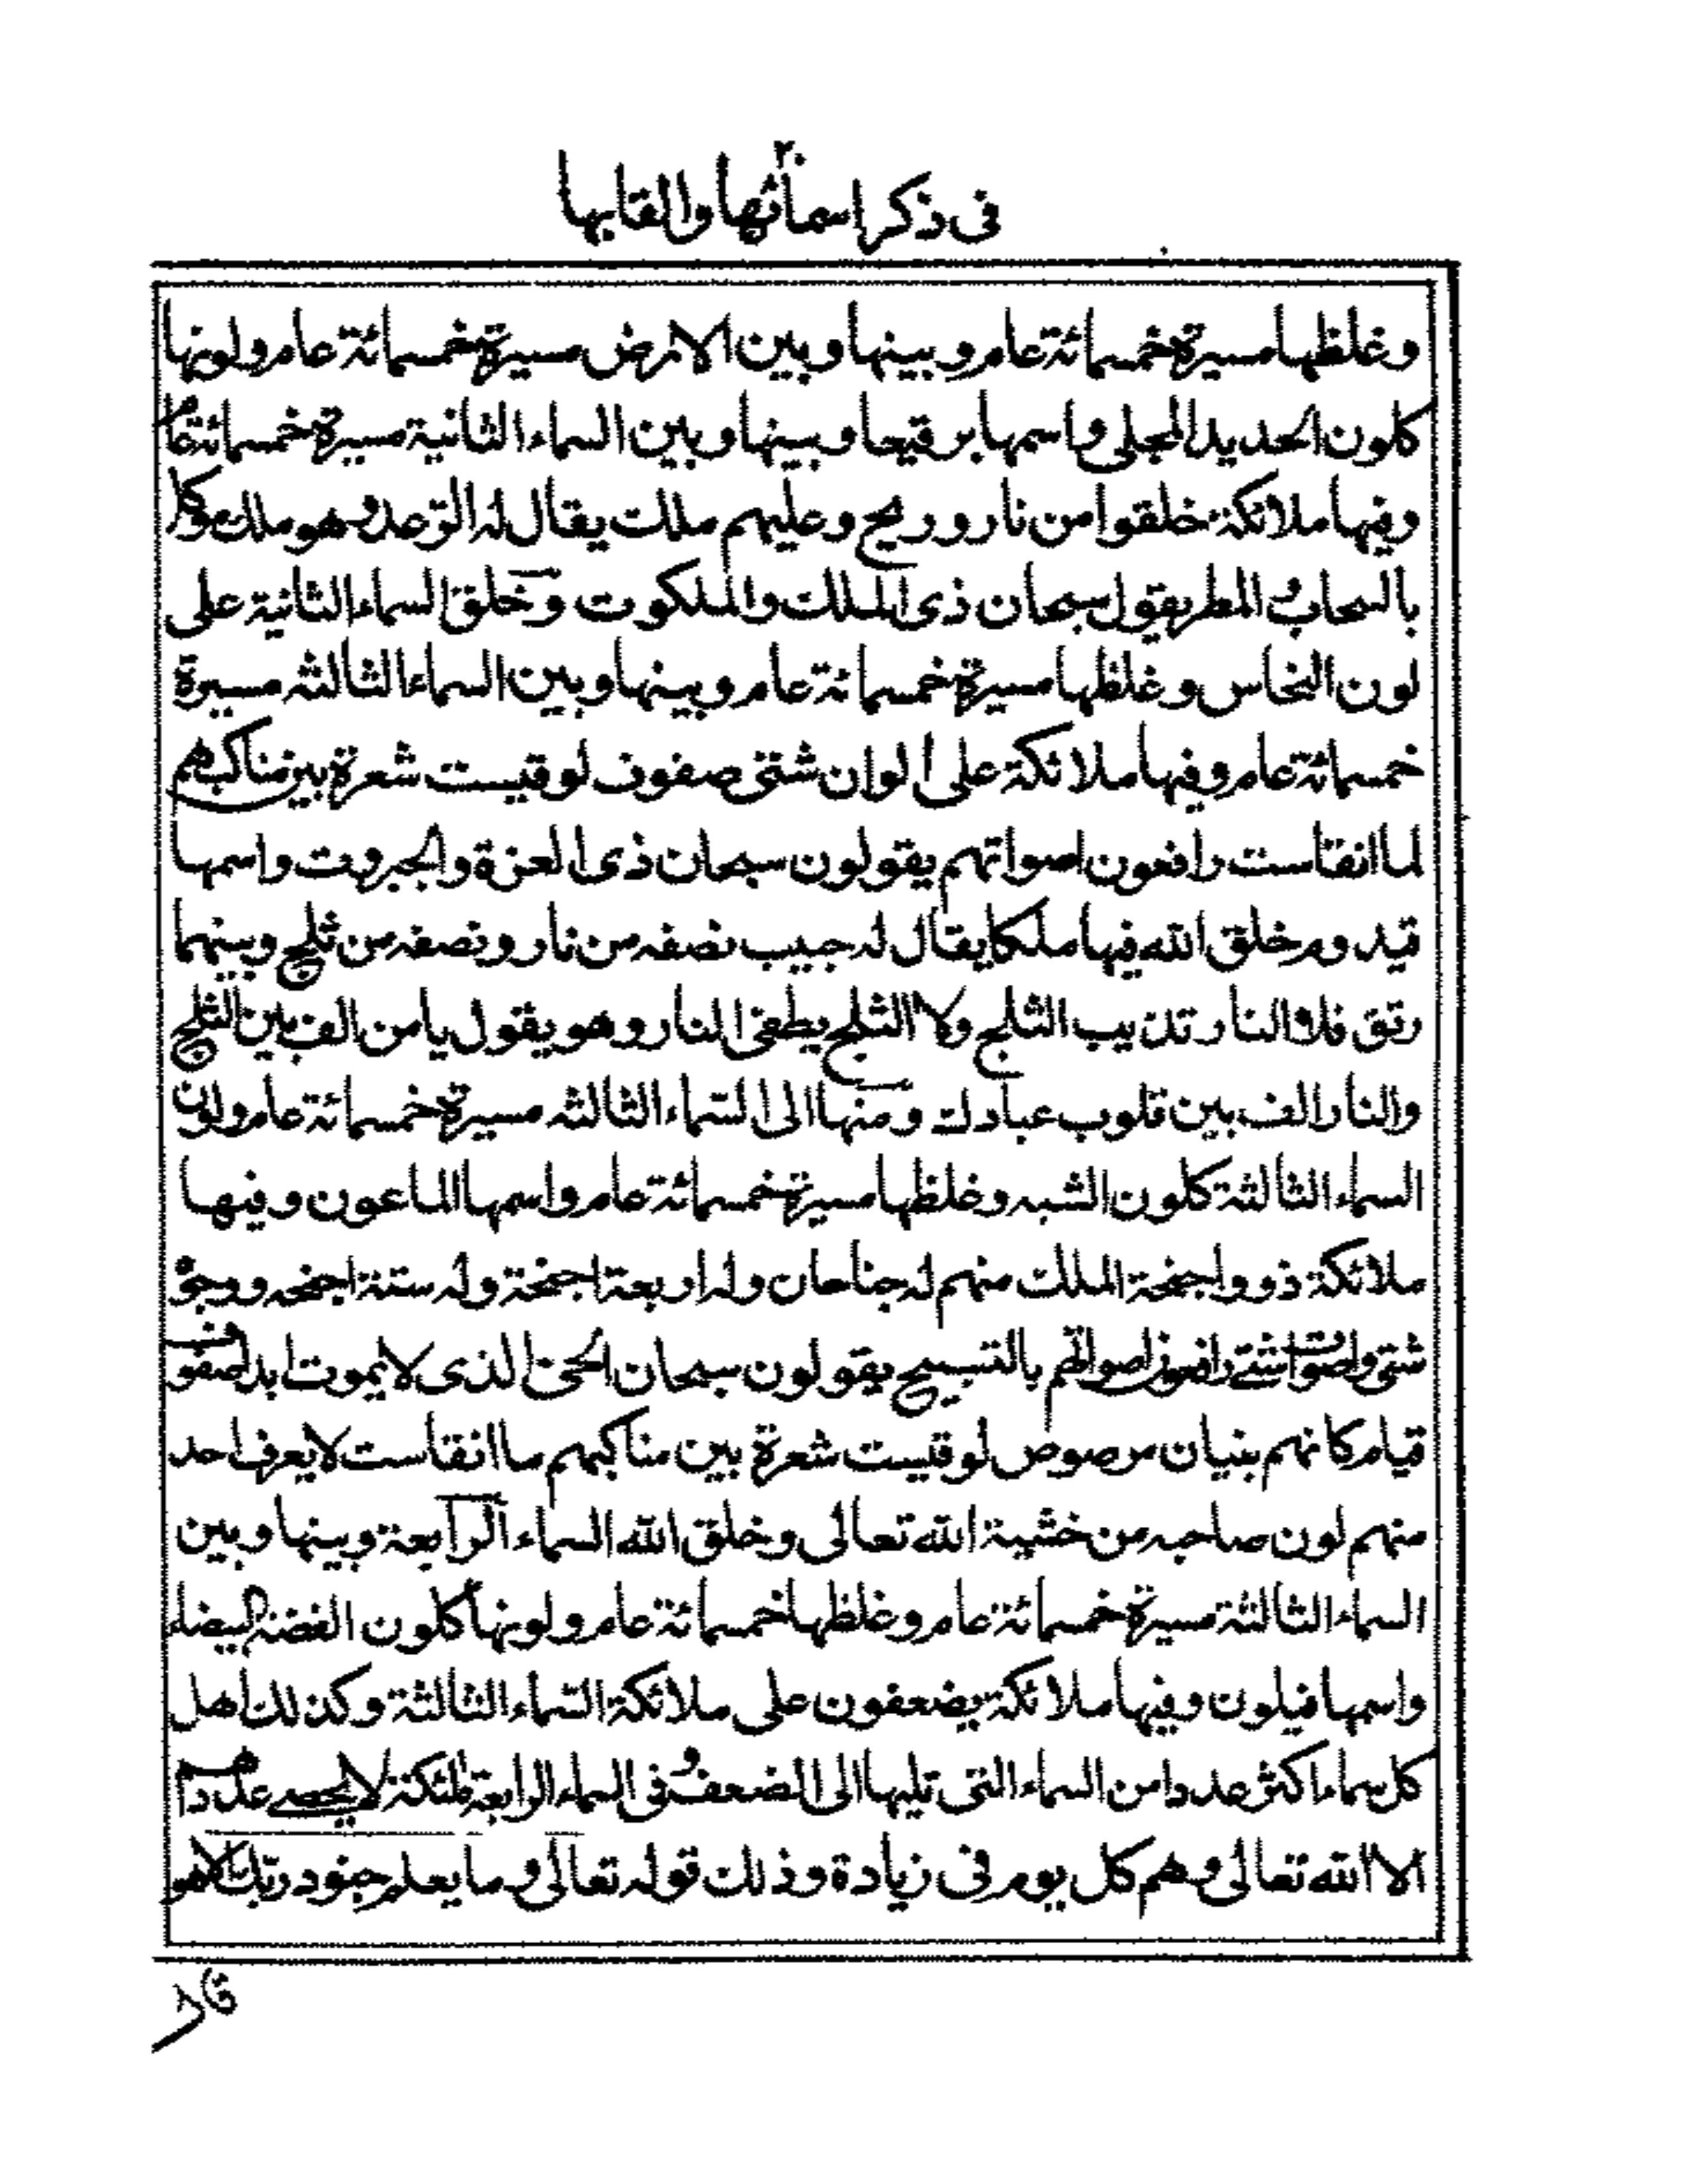 ٢٠
فى ذكر اسمائها والقابها
وغلظها مسيرة خمسمائة عام وبينها وبين الارض مسيرة خمسمائة عام ولونها
كلون الحديد المجلى واسمها برقيعا وبينها وبين السماء الثانية مسيرة خمسمائة عام
وفيها ملائكة خلقوا من نار وريح وعليهم ملك يقال له الرعد وهو ملك موكل
بالسحاب والمطر يقول سبحان ذى الملك والملكوت وخلق السماء الثانية على
لون النحاس وغلظها مسيرة خمسمائة عام وبينها وبين السماء الثالثه مسيرة
خمسمائة عام وفيها ملائكة على الوان شتى صفوف لو قيست شعرة بين مناكبهم
لما انقاست رافعون اصواتهم يقولون سبحان ذى العزة والجبروت واسمها
قيدوم خلق الله فيها ملكا يقال له حبيب نصفه من نار ونصفه من ثلج وبينهما
رتق فلا النار تذيب الثلج ولا الثلج يطفى النار وهو يقول يا من الف بين الثلج
والنار الف بين قلوب عبادك ومنها الى السماء الثالثه مسيرة خمسمائة عام ولون
السماء الثالثة كلون الشبه وغلظها مسيرة خمسمائة عام واسمها الماعون وفيها
ملائكة ذووا اجنحة الملك منهم له جناحان وله اربعة اجنحة وله ستة اجنحه ووجوه
شتى واصوات شتى رافعون اصواتهم بالتسبيح يقولون سبحان الحى الذى لا يموت ابدا صفوف
قيام كانهم بنيان مرصوص لو قيست شعرة بين مناكبهم ما انقاست لا يعرف احد
منهم لون صاحبه من خشية الله تعالى وخلق الله السماء الرابعة وبينها وبين
السماء الثالثة مسيرة خمسمائة عام وغلظها خمسمائة عام ولونها كلون الفضة البيضاء
واسمها فيلون وفيها ملائكة يضعفون على ملائكة السماء الثالثة وكذلك اهل
كل سماء اكثر عددا من السماء التى تليها الى الضعف وفى السماء الرابعة ملئكة لا يحصى عددهم
الا الله تعالى وهم كل يوم فى زيادة وذلك قوله تعالى وما يعلم جنود ربك الا هو
قال